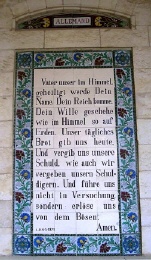 ALLEMAND
Vater unser im Himmel,
geheiligt werde Dein
Name. Dein Reich komme.
Dein Wille geschehe
wie im Himmel so auf
Erden. Unser tägliches
Brot gib uns heute.
Und vergib uns unsere
Schuld, wie auch wir
vergeben unsern Schul-
digern. Und führe uns
nicht in Versuchung
sondern erlöse uns
von dem Bösen!
Amen.